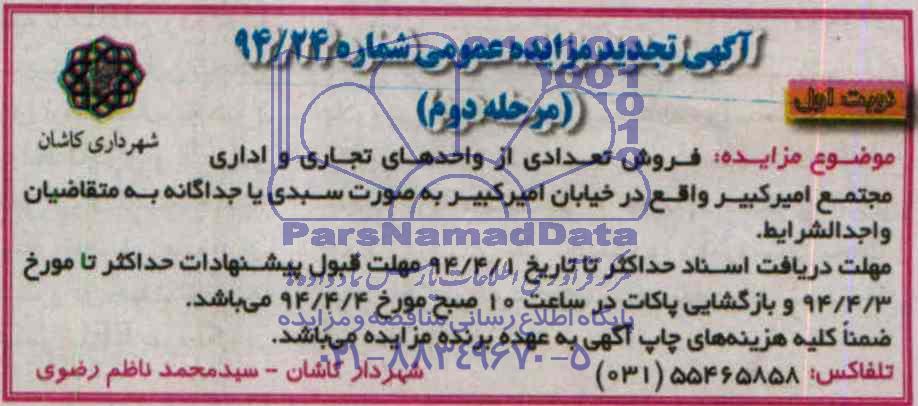 آگهی تجدید مزایده عمومی شماره ۹۴/۲۴
(مرحله دوم)
نوبت اول
شهرداری کاشان
موضوع مزایده: فروش تعدادی از واحدهای تجاری و اداری
مجتمع امیرکبیر واقع در خیابان امیرکبیر به صورت سبدی یا جداگانه به متقاضیان
واجدالشرایط.
مهلت دریافت اسناد حداکثر تا تاریخ ۹۴/۴/۱ مهلت قبول پیشنهادات حداکثر تا مورخ
۹۴/۴/۳ و بازگشایی پاکات در ساعت ۱۰ صبح مورخ ۹۴/۴/۴ می‌باشد.
ضمناً کلیه هزینه‌های چاپ آگهی به عهده برنده مزایده می‌باشد.
تلفاکس: ۵۵۴۶۵۸۵۸ (۰۳۱)
شهردار کاشان - سیدمحمد ناظم رضوی
ParsNamadData
مرکز فرآوری اطلاعات پارس نماد داده
پایگاه اطلاع رسانی مناقصه و مزایده
۰۲۱-۸۸۳۴۹۶۷۰-۵